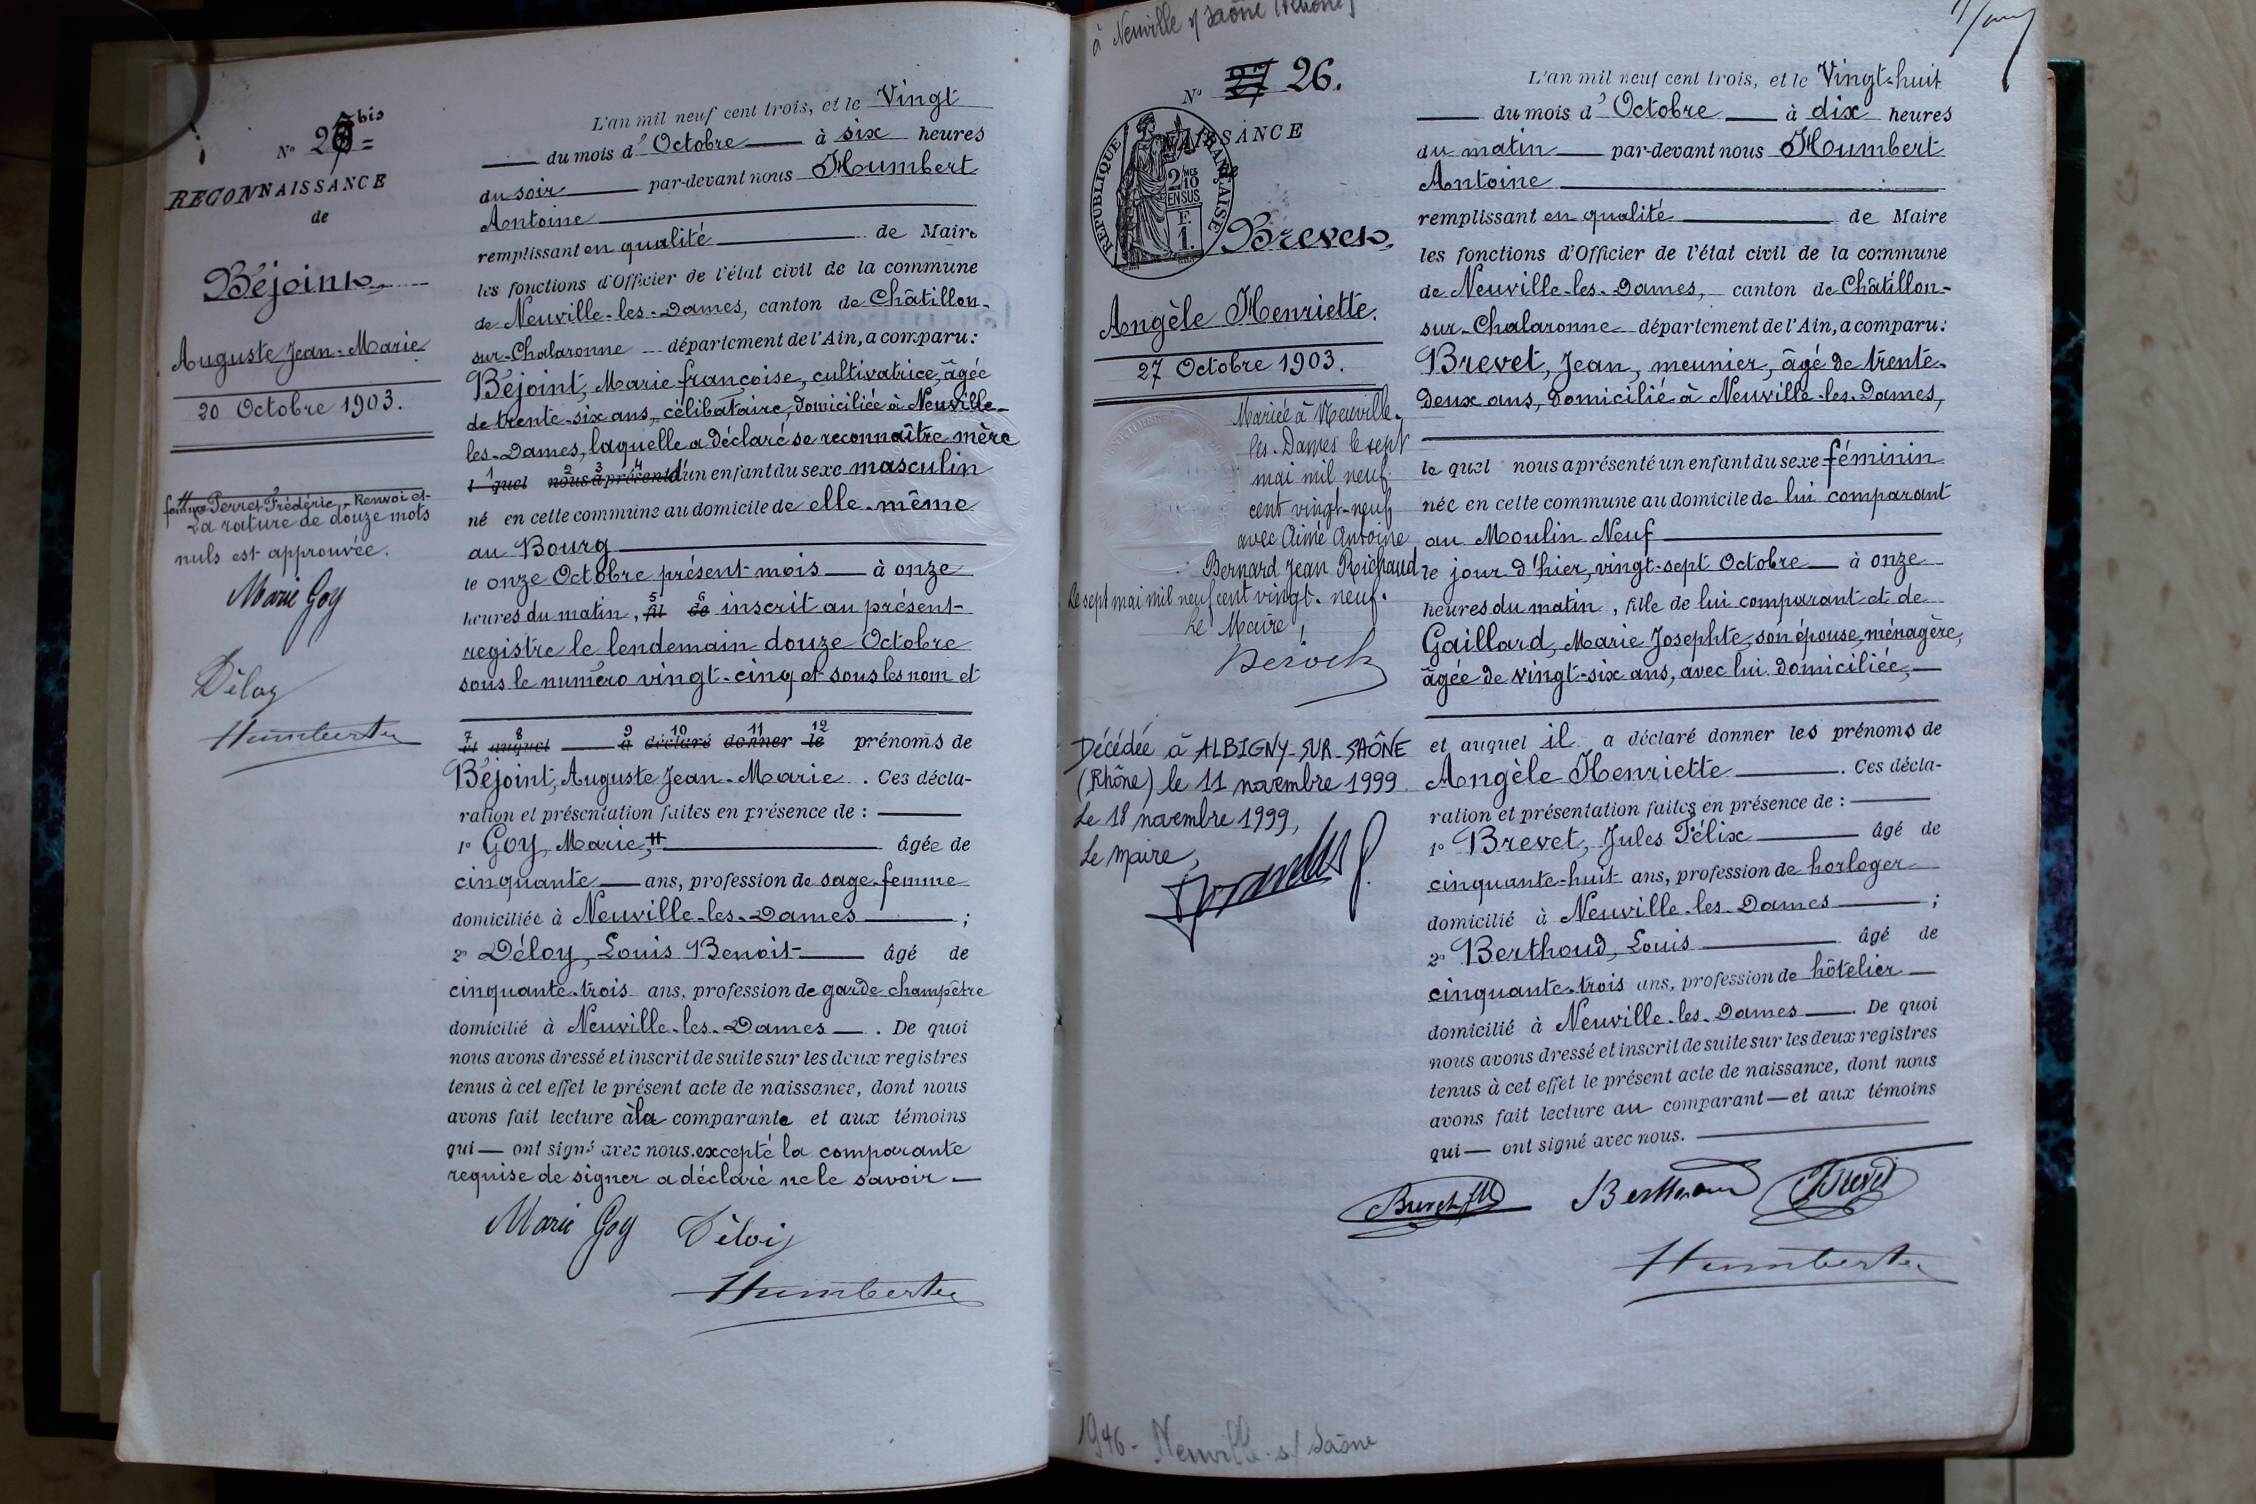 N° 25 bis =
RECONNAISSANCE
de
Béjoint,
Auguste Jean-Marie
20 Octobre 1903.
# femme Perret Frédéric, - Renvoi et
La rature de douze mots
nuls est approuvée.
Marie Goy
Déloy
Humbert
L'an mil neuf cent trois, et le Vingt
du mois d'Octobre à six heures
du soir par-devant nous Humbert
Antoine
remplissant en qualité de Maire
les fonctions d'Officier de l'état civil de la commune
de Neuville-les-Dames, canton de Châtillon-
sur-Chalaronne département de l'Ain, a comparu:
Béjoint, Marie françoise, cultivatrice, âgée
de trente-six ans, célibataire, domiciliée à Neuville-
les-Dames, laquelle a déclaré se reconnaître mère
1 2 3 4
l quel nous a présenté d'un enfant du sexe masculin
né en cette commune au domicile de elle-même
au Bourg
le onze Octobre présent mois à onze
5 6
heures du matin, fil de inscrit au présent
registre le lendemain douze Octobre
sous le numéro vingt-cinq et sous les nom et
7 8 9 10 11 12
et auquel a déclaré donner le prénoms de
Béjoint, Auguste Jean-Marie. Ces décla-
ration et présentation faites en présence de :
1° Goy, Marie, # âgée de
cinquante ans, profession de sage-femme
domiciliée à Neuville-les-Dames ;
2° Déloy, Louis Benoit âgé de
cinquante-trois ans, profession de garde champêtre
domicilié à Neuville-les-Dames. De quoi
nous avons dressé et inscrit de suite sur les deux registres
tenus à cet effet le présent acte de naissance, dont nous
avons fait lecture à la comparante et aux témoins
qui ont signé avec nous. excepté la comparante
requise de signer a déclaré ne le savoir
Marie Goy Déloy
Humbert
à Neuville s/ Saône (Rhône)
N° 27 26.
NAISSANCE
de
RÉPUBLIQUE FRANÇAISE
2 MES
10
EN SUS
F.
1.
Brevet,
Angèle Henriette.
27 Octobre 1903.
Mariée à Neuville-
les-Dames le sept
mai mil neuf
cent vingt-neuf
avec Aimé Antoine
Bernard Jean Richaud
Le sept mai mil neuf cent vingt-neuf.
Le Maire,
Décédée à ALBIGNY-SUR-SAÔNE
(Rhône) le 11 novembre 1999
Le 18 novembre 1999,
Le Maire,
L'an mil neuf cent trois, et le Vingt-huit
du mois d'Octobre à dix heures
du matin par-devant nous Humbert
Antoine
remplissant en qualité de Maire
les fonctions d'Officier de l'état civil de la commune
de Neuville-les-Dames, canton de Châtillon-
sur-Chalaronne département de l'Ain, a comparu:
Brevet, Jean, meunier, âgé de trente-
deux ans, domicilié à Neuville-les-Dames,
le quel nous a présenté un enfant du sexe féminin
née en cette commune au domicile de lui comparant
au Moulin Neuf
le jour d'hier, vingt-sept Octobre à onze
heures du matin, fille de lui comparant et de
Gaillard, Marie Josephte, son épouse, ménagère,
âgée de vingt-six ans, avec lui domiciliée,
et auquel il a déclaré donner les prénoms de
Angèle Henriette. Ces décla-
ration et présentation faites en présence de :
1° Brevet, Jules Félix âgé de
cinquante-huit ans, profession de horloger
domicilié à Neuville-les-Dames ;
2° Berthoud, Louis âgé de
cinquante-trois ans, profession de hôtelier
domicilié à Neuville-les-Dames. De quoi
nous avons dressé et inscrit de suite sur les deux registres
tenus à cet effet le présent acte de naissance, dont nous
avons fait lecture au comparant et aux témoins
qui ont signé avec nous.
Brevet Berthoud Brevet
Humbert
1946 - Neuville s/ Saône